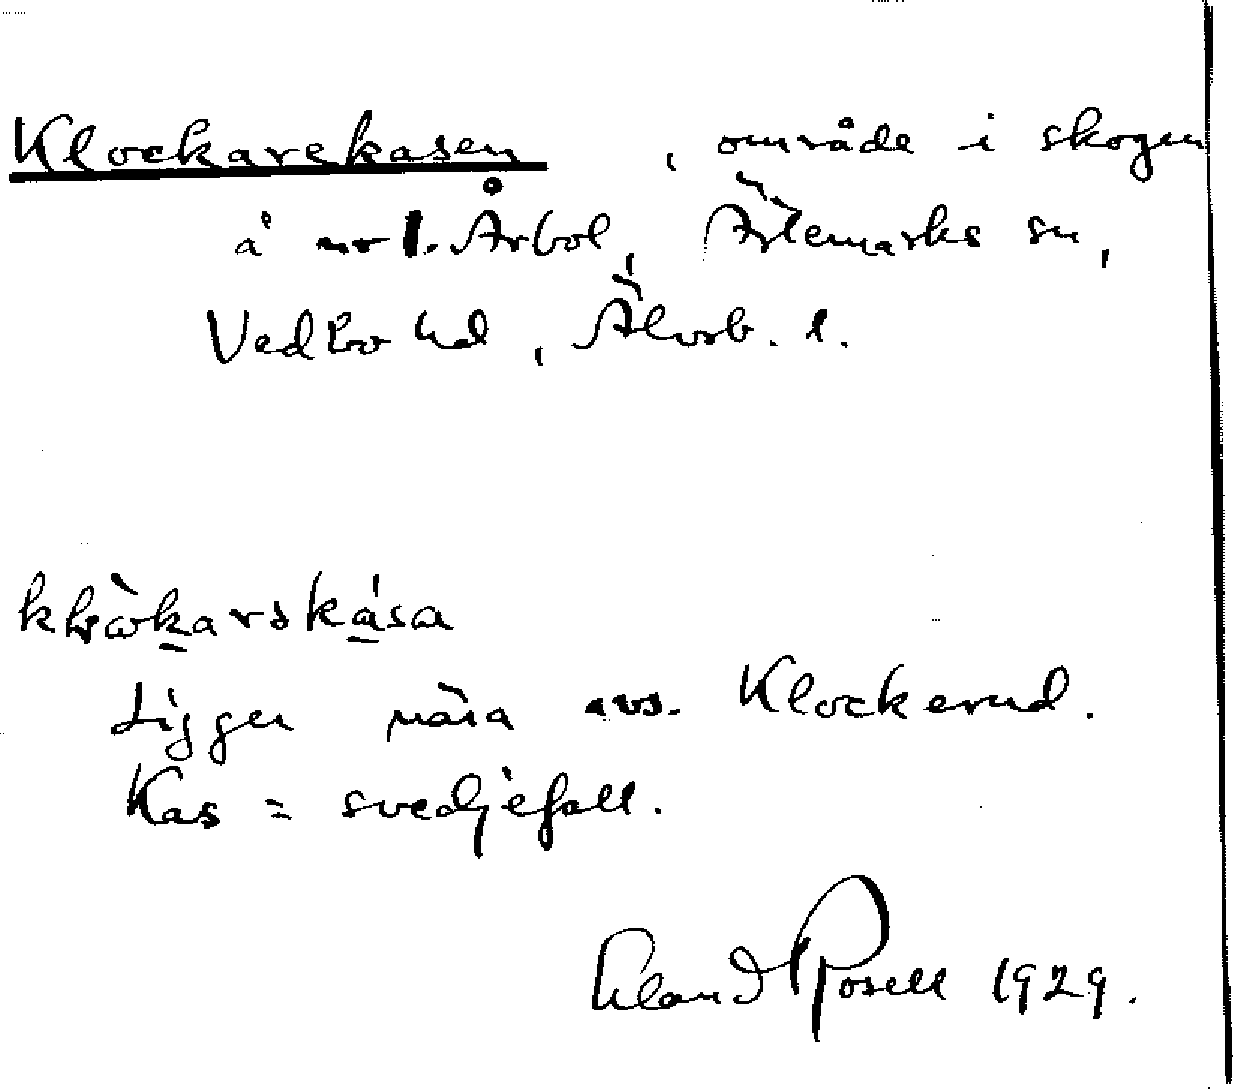 Klockarekasen, område i skogen
å nr 1. Årbol, Ärtemarks sn,
Vedbo hd, Älvsb. l.
Ligger nära avs. Klockerud.
Kas = svedjefall.
Erland Rosell 1929.